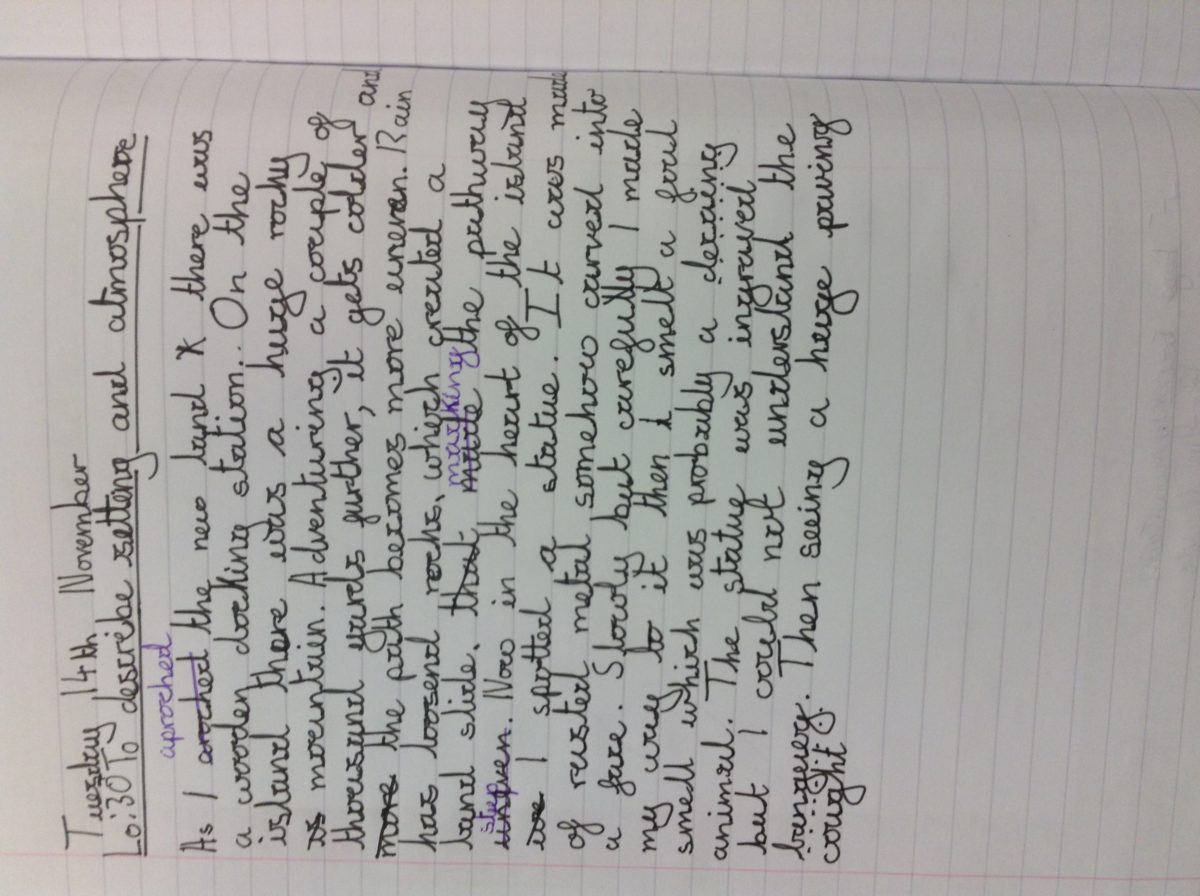 Tuesday 14th November
Lo:30 To desribe setting and atmosphere
aproched
As I aroched the new land * there was
a wooden docking station. On the
island there was a huge rochy
is mountrien. Adventuring a couple of
thousand yards further, it gets colder and
more the path becomes more uneven. Rain
has loosend rochs, which created a
marking
land slide, that made the pathway
step
unven. Now in the heart of the island
we I spotted a statue. It was made
of rusted metal somehow carved into
a face. Slowly but carefully I made
my way to it then I smelt a foul
smell which was probably a decaing
animal. The statue was ingraved
but I could not understand the
langueg. Then seeing a huge paving
cought it